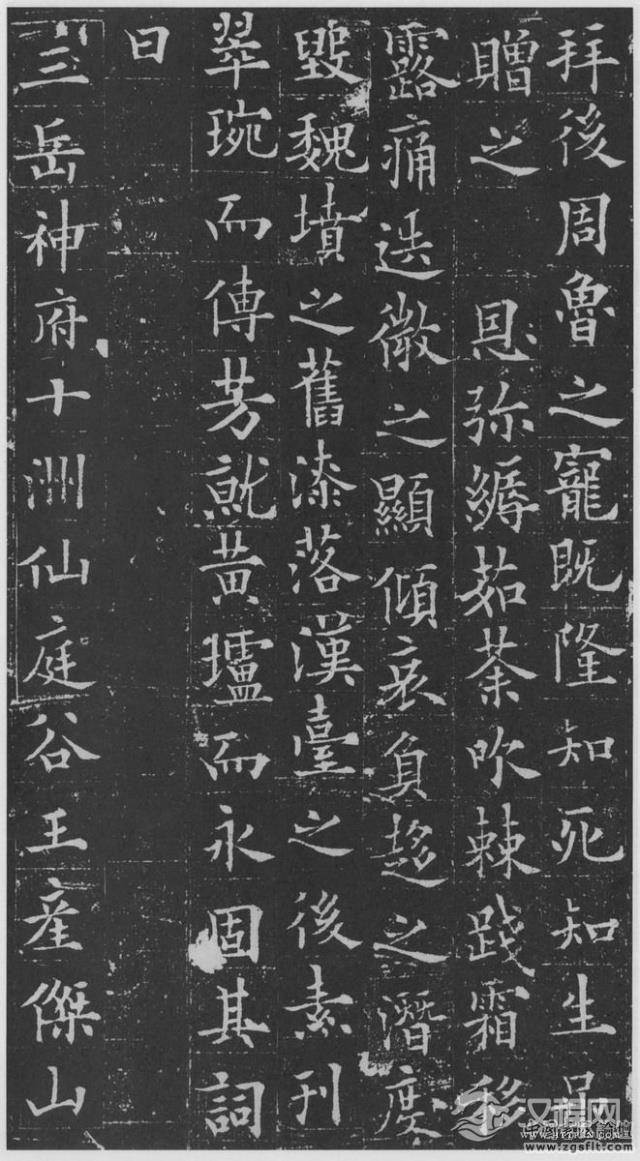 拜後周魯之寵既隆知死知生吊
贈之 恩弥縟茹荼吹棘踐霜移
露痛迭微之顯傾哀負趍之潛度
毀魏墳之舊漆落漢臺之後素刊
翠琬而傳芳就黃壚而永固其詞
曰
三岳神府十洲仙庭谷王產傑山
汉程网
www.zgsflt.com